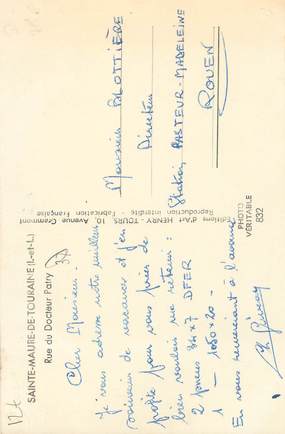 SAINTE-MAURE-DE-TOURAINE (I.-et-L.)
Rue du Docteur Patry
37
Cher Monsieur.
Je vous adresse notre meilleur
souvenir de vacances et j'en
profite pour vous prier de
bien vouloir me retenir :
2 pneus 34 x 7 DFER
1 — 1050 x 20 —
En vous remerciant à l'avance
Editions d'Art HENRY - TOURS, 10, Avenue Grammont
Reproduction interdite - Fabrication Française
PHOTO
VÉRITABLE
832
Monsieur BLOTTIÈRE
Directeur
Station PASTEUR-MADELEINE
ROUEN